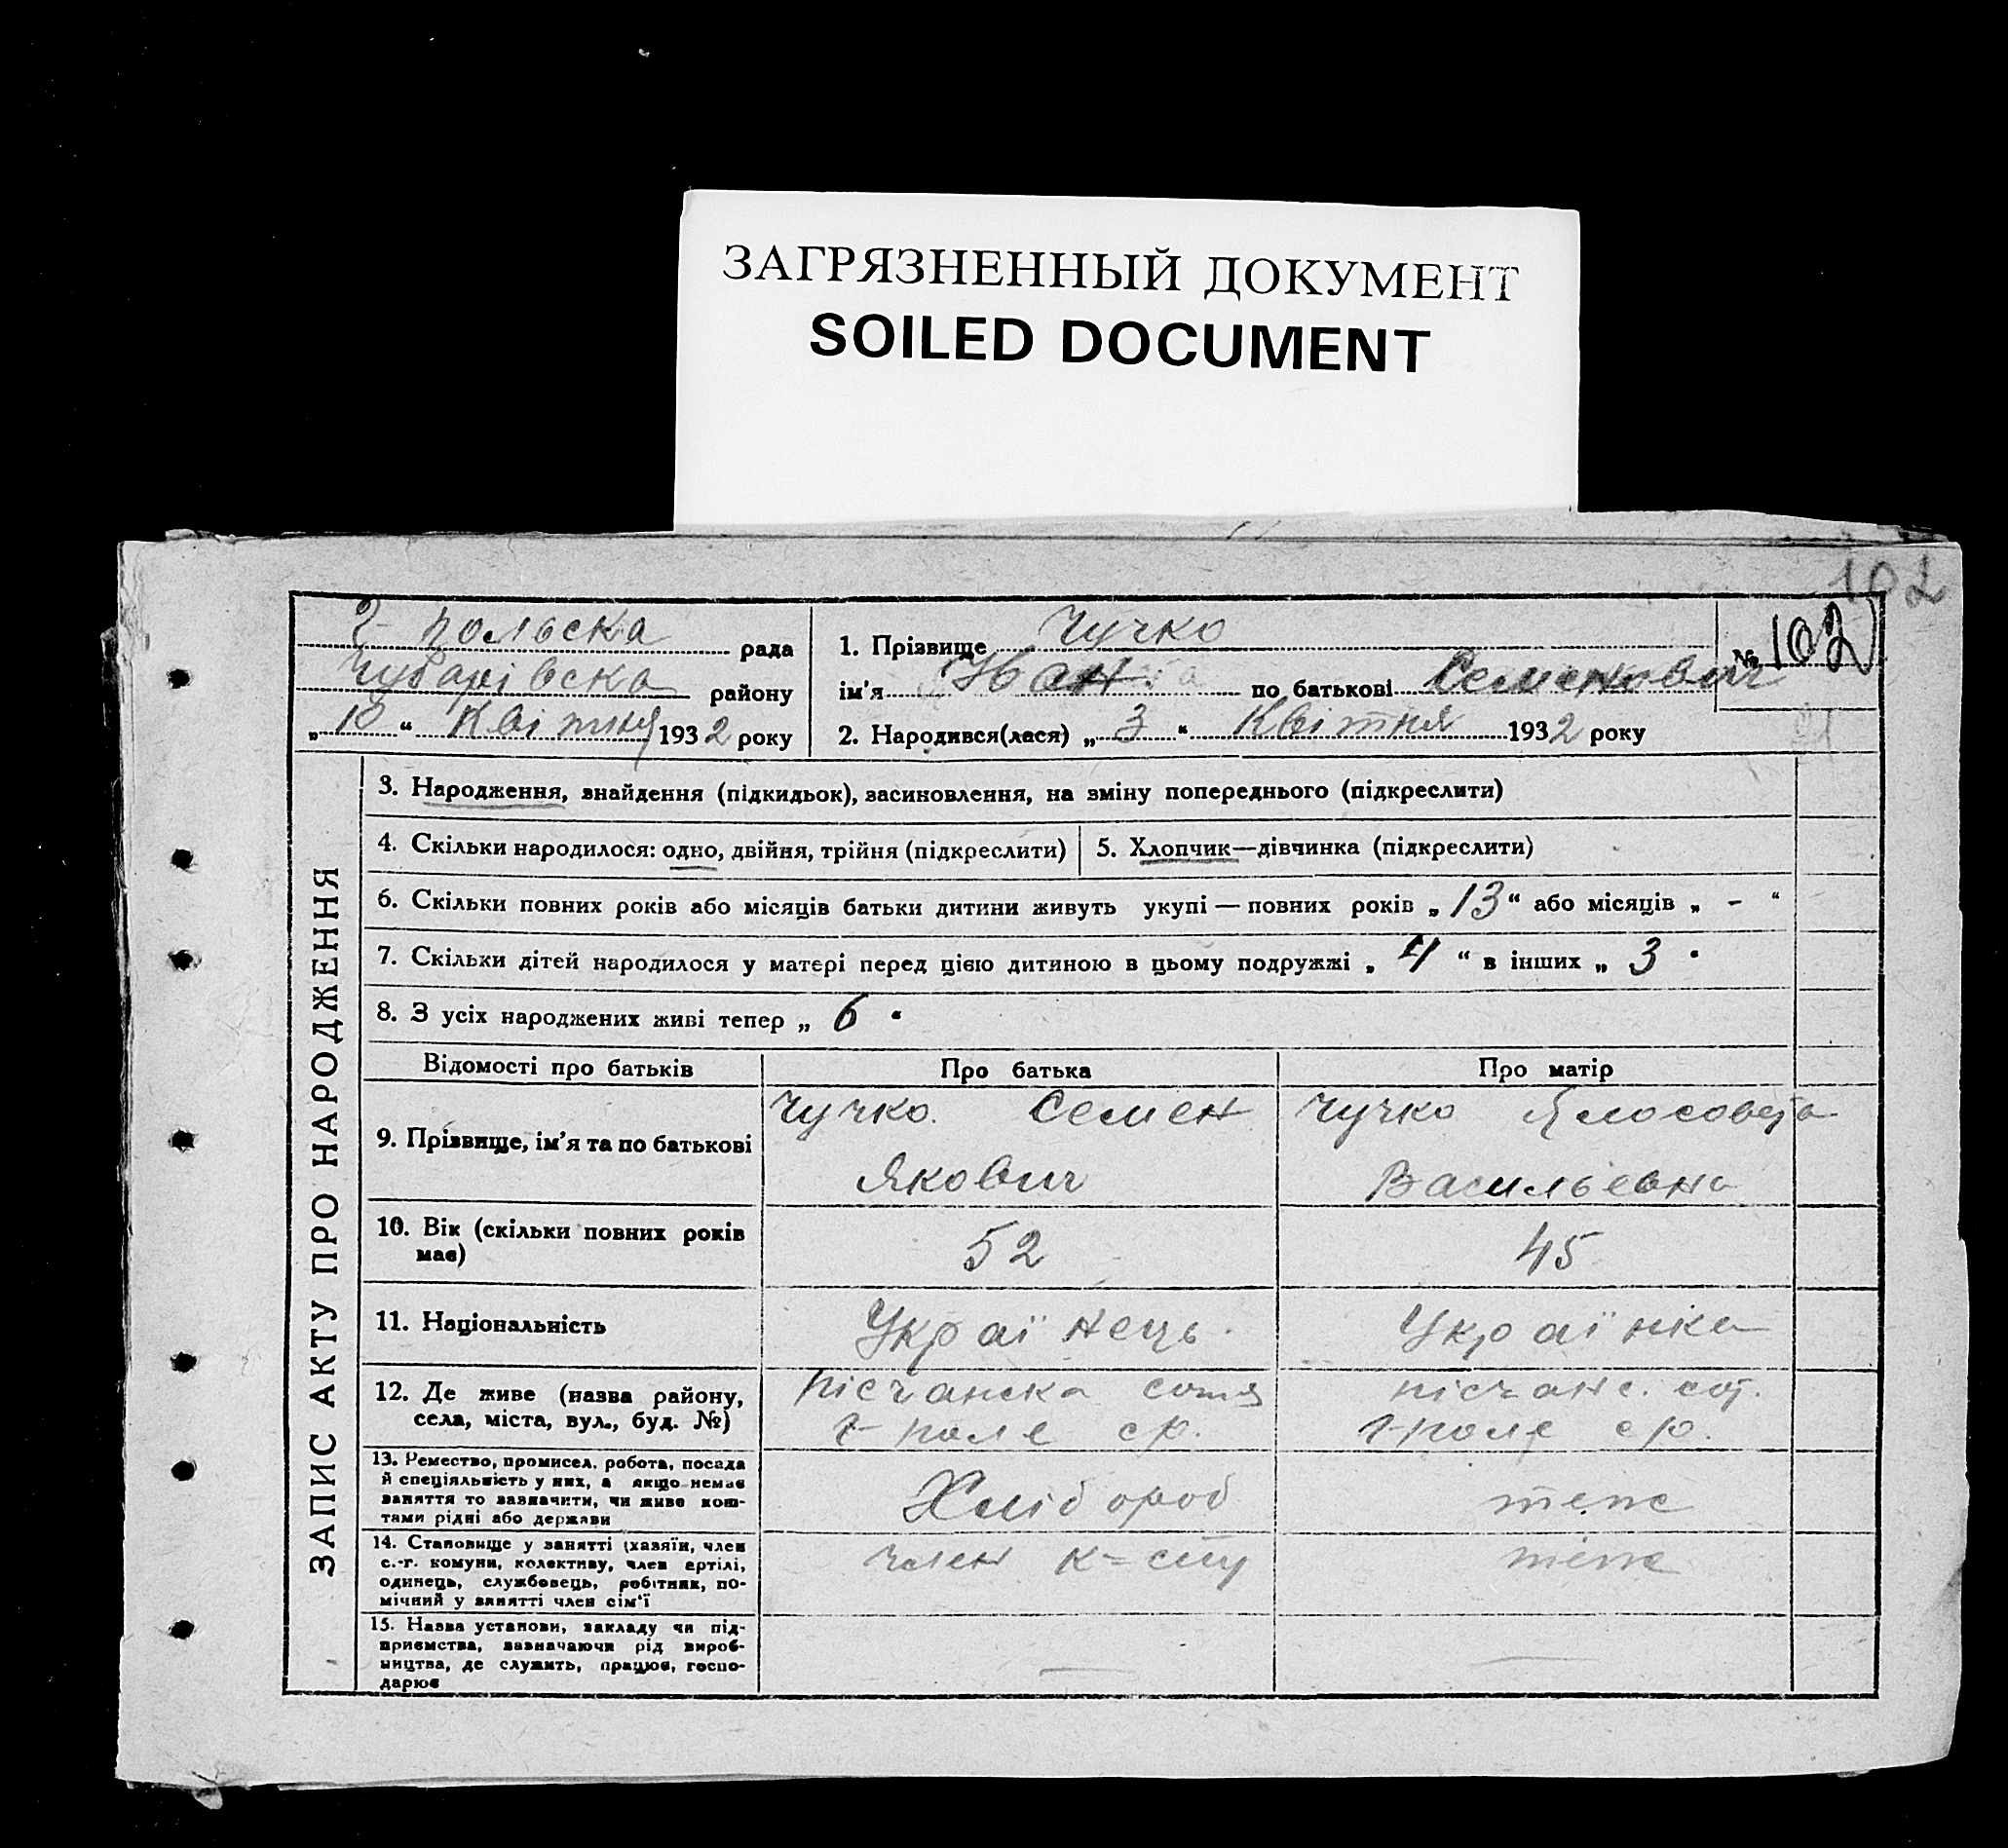 ЗАГРЯЗНЕННЫЙ ДОКУМЕНТ
SOILED DOCUMENT
102
Г-польска рада
Чубарівска району
„ 10 “ Квітня 1932 року
1. Прізвище Чучко
ім'я Іван по батькові Семенович
№ 102
2. Народився(лася) „ 3 “ Квітня 1932 року
ЗАПИС АКТУ ПРО НАРОДЖЕННЯ
3. Народження, знайдення (підкидьок), засиновлення, на зміну попереднього (підкреслити)
4. Скільки народилося: одно, двійня, трійня (підкреслити)
5. Хлопчик—дівчинка (підкреслити)
6. Скільки повних років або місяців батьки дитини живуть укупі — повних років „ 13 “ або місяців „ - “
7. Скільки дітей народилося у матері перед цією дитиною в цьому подружжі „ 4 “ в інших „ 3 “
8. З усіх народжених живі тепер „ 6 “
Відомості про батьків
Про батька
Про матір
9. Прізвище, ім'я та по батькові
Чучко Семен
Якович
Чучко Ялосовета
Васильевна
10. Вік (скільки повних років
має)
52
45
11. Національність
Українець
Українка
12. Де живе (назва району,
села, міста, вул., буд. №)
пісчанска сотня
Г-поле ср.
пісчанс. сот.
Г-поле ср.
13. Ремество, промисел, робота, посада
й спеціяльність у них, а якщо немає
заняття то зазначити, чи живе кош-
тами рідні або держави
Хлібороб
теже
14. Становище у занятті (хазяїн, член
с.-г. комуни, колективу, член артілі,
одинець, службовець, робітник, по-
мічний у занятті член сім'ї
член к=спу
теже
15. Назва установи, закладу чи під-
приємства, зазначаючи рід вироб-
ництва, де служить, працює, госпо-
дарює